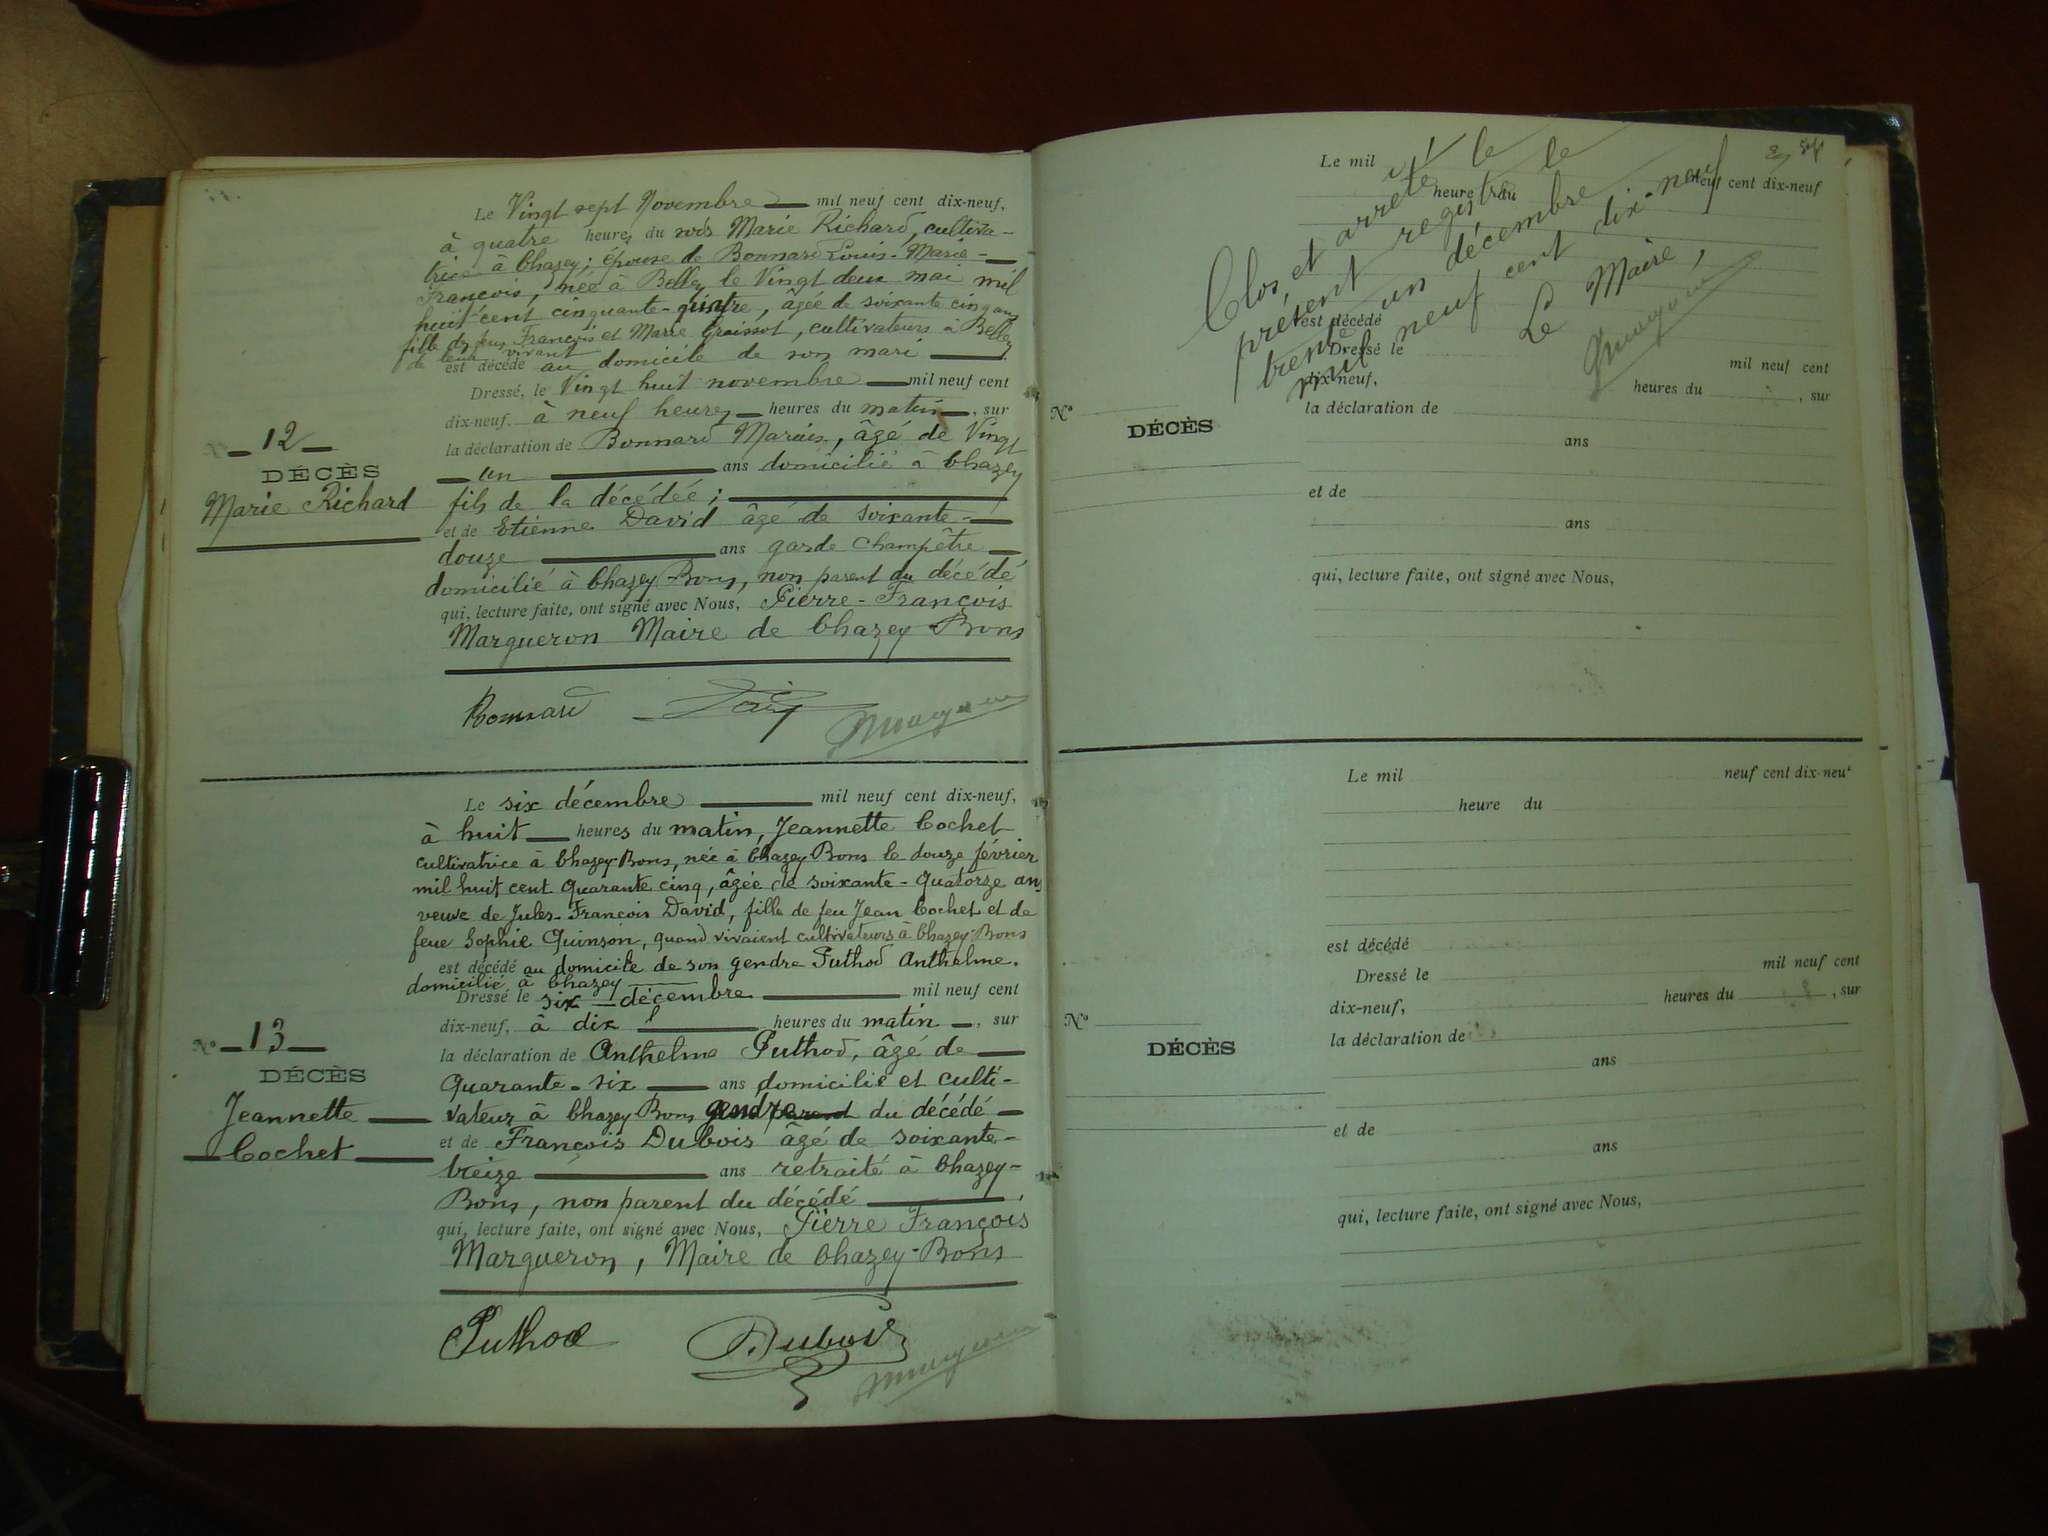 Le Vingt sept Novembre mil neuf cent dix-neuf,
à quatre heures du soir Marie Richard, cultiva-
trice à Chazey; épouse de Bonnard Louis-Marie-
François, née à Belley le Vingt deux mai mil
huit cent cinquante-quatre, âgée de soixante cinq ans
fille de feu François et Marie Graissot, cultivateurs à Belley
de leur vivant
est décédé au domicile de son mari
Dressé, le Vingt huit novembre mil neuf cent
dix-neuf, à neuf heures heures du matin, sur
la déclaration de Bonnard Marius, âgé de Vingt
un ans domicilié à Chazey
fils de la décédée;
et de Etienne David âgé de soixante-
douze ans garde champêtre
domicilié à Chazey-Bons, non parent du décédé
qui, lecture faite, ont signé avec Nous, Pierre-François
Margueron Maire de Chazey-Bons
12
DÉCÈS
Marie Richard
Bonnard
Le six décembre mil neuf cent dix-neuf,
à huit heures du matin, Jeannette Cochet
cultivatrice à Chazey-Bons, née à Chazey Bons le douze février
mil huit cent quarante cinq, âgée de soixante-quatorze ans
veuve de Jules-François David, fille de feu Jean Cochet et de
feue Sophie Quinson, quand vivaient cultivateurs à Chazey-Bons
est décédé au domicile de son gendre Puthod Anthelme.
domicilié à Chazey
Dressé le six décembre mil neuf cent
dix-neuf, à dix heures du matin, sur
la déclaration de Anthelme Puthod, âgé de
quarante-six ans domicilié et culti-
vateur à Chazey Bons gendre du décédé
et de François Dubois âgé de soixante-
treize ans retraité à Chazey-
Bons, non parent du décédé,
qui, lecture faite, ont signé avec Nous, Pierre François
Margueron, Maire de Chazey-Bons
No 13
DÉCÈS
Jeannette
Cochet
Puthod
Dubois
Le mil neuf cent dix-neuf
heure du
est décédé
Dressé le mil neuf cent
dix-neuf, heures du , sur
la déclaration de
ans
et de
ans
qui, lecture faite, ont signé avec Nous,
No
DÉCÈS
Clos et arrêté le
présent registre le
trente un décembre
mil neuf cent dix-neuf
Le Maire,
Le mil neuf cent dix-neuf
heure du
est décédé
Dressé le mil neuf cent
dix-neuf, heures du , sur
la déclaration de
ans
et de
ans
qui, lecture faite, ont signé avec Nous,
No
DÉCÈS